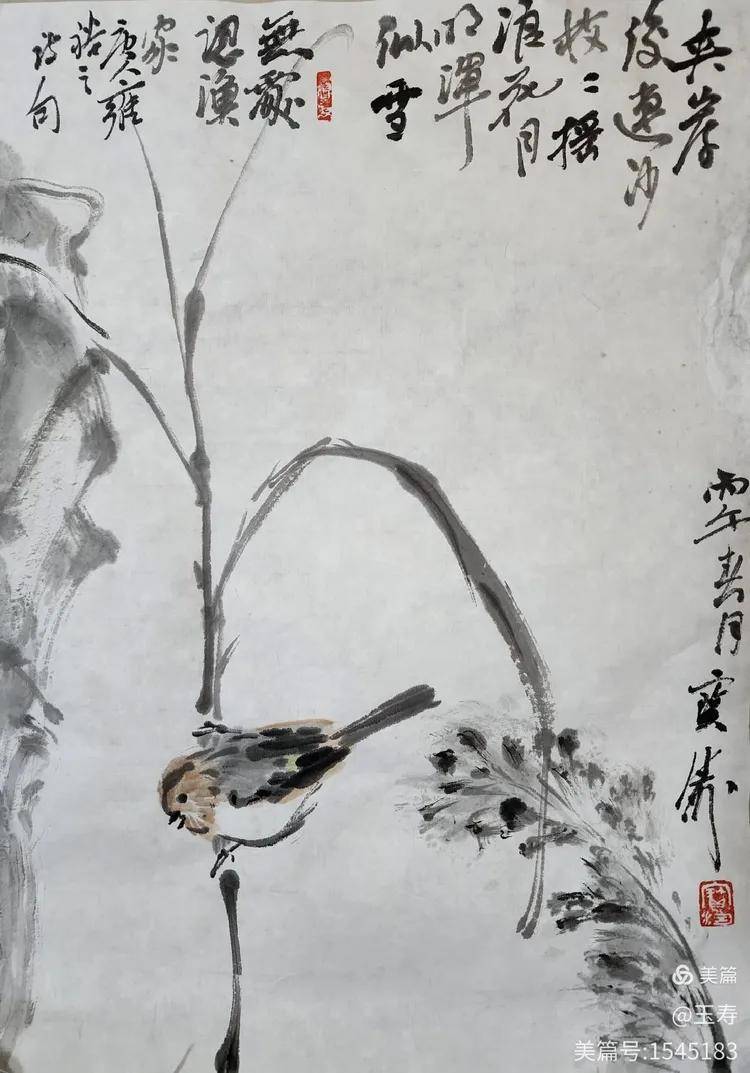 夾岸
復連沙
枝〻摇
浪花月
明渾
似雪
無處
認漁
家
唐雍
裕之
诗句
丙午春月寶
美篇
@玉寿
美篇号:1545183